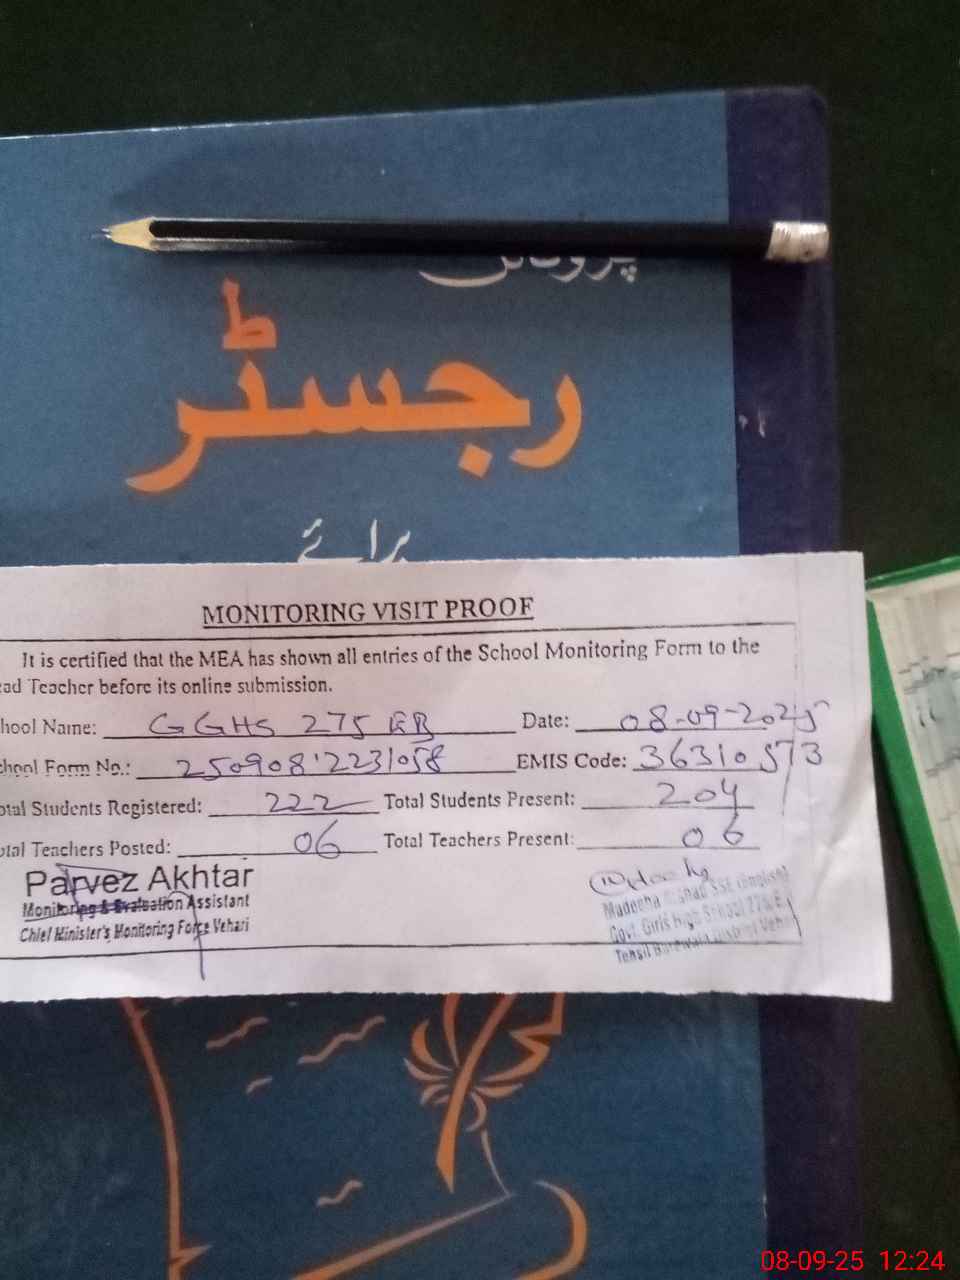 رجسٹر
برائے
MONITORING VISIT PROOF
It is certified that the MEA has shown all entries of the School Monitoring Form to the
ad Teacher before its online submission.
hool Name: GGHS 275 EB Date: 08-09-2025
chool Form No.: 25090812231058 EMIS Code: 36310573
otal Students Registered: 222 Total Students Present: 204
otal Teachers Posted: 06 Total Teachers Present: 06
Parvez Akhtar
Monitoring & Evaluation Assistant
Chief Minister's Monitoring Force Vehari
SSE (English)
Govt. Girls High School
Tehsil Burewala District Vehari
08-09-25 12:24